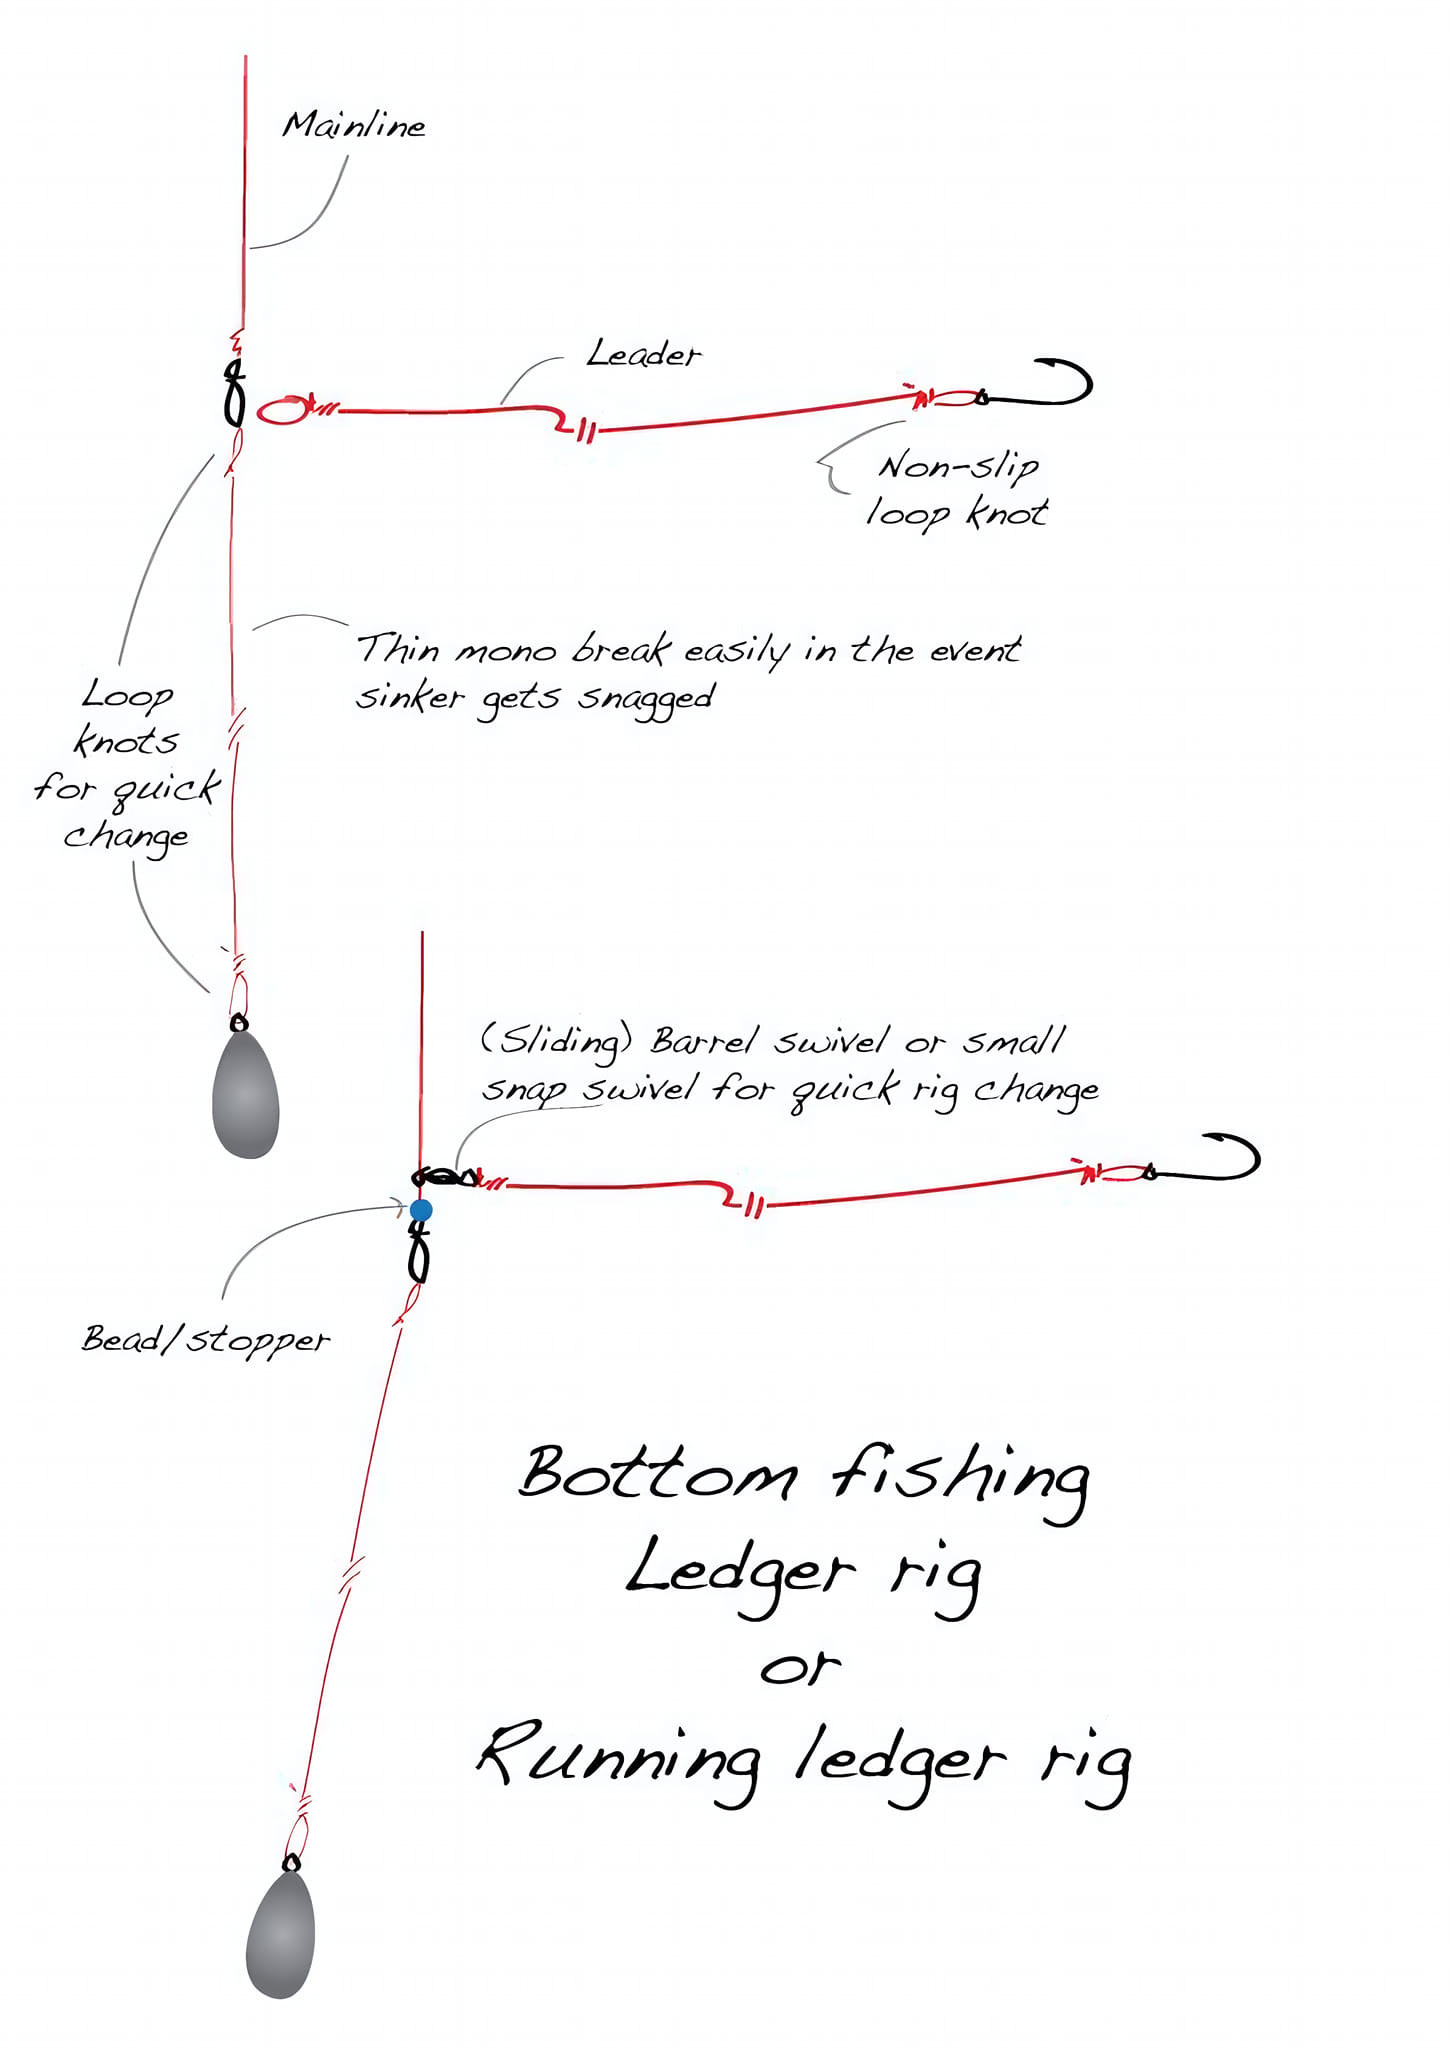 Mainline
Leader
Non-slip
loop knot
Thin mono break easily in the event
sinker gets snagged
Loop
knots
for quick
change
(Sliding) Barrel swivel or small
snap swivel for quick rig change
Bead/stopper
Bottom fishing
Ledger rig
or
Running ledger rig